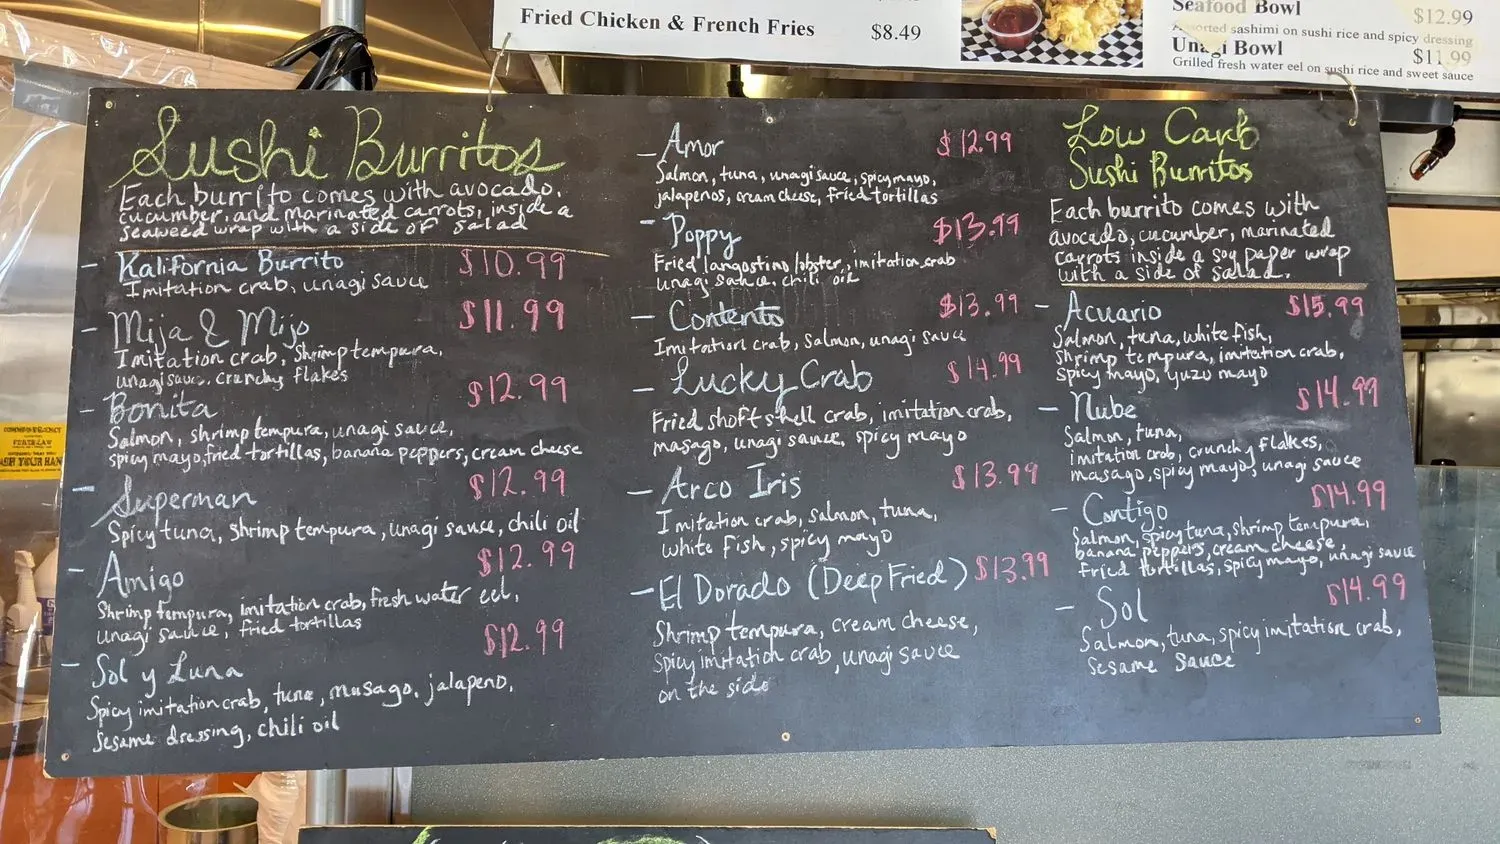 Fried Chicken & French Fries $8.49
Seafood Bowl $12.99
Assorted sashimi on sushi rice and spicy dressing
Unagi Bowl $11.99
Grilled fresh water eel on sushi rice and sweet sauce
Sushi Burritos
Each burrito comes with avocado,
cucumber, and marinated carrots, inside a
seaweed wrap with a side of salad
- Kalifornia Burrito $10.99
Imitation crab, unagi sauce
- Mija & Mijo $11.99
Imitation crab, shrimp tempura,
unagi sauce, crunchy flakes
- Bonita $12.99
Salmon, shrimp tempura, unagi sauce,
spicy mayo, fried tortillas, banana peppers, cream cheese
- Superman $12.99
Spicy tuna, shrimp tempura, unagi sauce, chili oil
- Amigo $12.99
Shrimp tempura, imitation crab, fresh water eel,
unagi sauce, fried tortillas
- Sol y Luna $12.99
Spicy imitation crab, tuna, masago, jalapeno,
sesame dressing, chili oil
- Amor $12.99
Salmon, tuna, unagi sauce, spicy mayo,
jalapenos, cream cheese, fried tortillas
- Poppy $13.99
Fried langostino lobster, imitation crab
unagi sauce, chili oil
- Contento $13.99
Imitation crab, salmon, unagi sauce
- Lucky Crab $14.99
Fried shoft shell crab, imitation crab,
masago, unagi sauce, spicy mayo
- Arco Iris $13.99
Imitation crab, salmon, tuna,
white fish, spicy mayo
- El Dorado (Deep Fried) $13.99
Shrimp tempura, cream cheese,
spicy imitation crab, unagi sauce
on the side
Low Carb
Sushi Burritos
Each burrito comes with
avocado, cucumber, marinated
carrots inside a soy paper wrap
with a side of salad.
- Acuario $15.99
Salmon, tuna, white fish,
shrimp tempura, imitation crab,
spicy mayo, yuzu mayo
- Nube $14.99
Salmon, tuna,
imitation crab, crunchy flakes,
masago, spicy mayo, unagi sauce
- Contigo $14.99
Salmon, spicy tuna, shrimp tempura,
banana peppers, cream cheese,
fried tortillas, spicy mayo, unagi sauce
- Sol $14.99
Salmon, tuna, spicy imitation crab,
sesame sauce